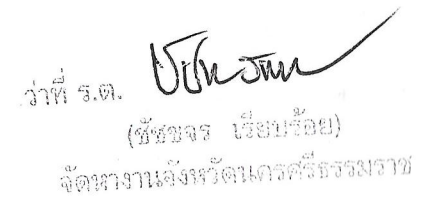 ว่าที่ ร.ต.
(ชัชขจร เรียบร้อย)
จัดหางานจังหวัดนครศรีธรรมราช